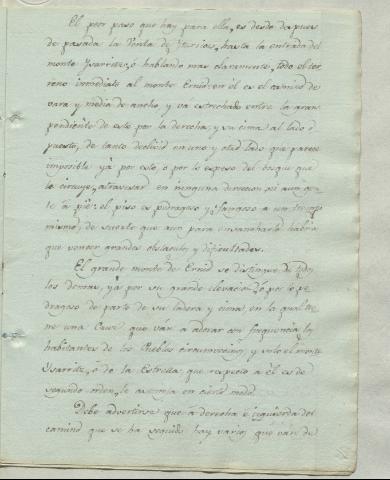 El peor paso que hay para ella, es desde despues
de pasada la Venta de hasta la entrada del
monte Ysarritz, ó hablando mas claramente, todo el ter
reno inmediato al monte Ernio: en él es el camino de
vara y media de ancho y va estrechado entre la gran
pendiente de este por la derecha, y su cima al lado o
puesto, de tanto declivio en uno y otro lado que parece
imposible yá por esto, ó por lo espeso del bosque que
le circuye, atravesar en ninguna direccion ni aun gen
te a pie: el piso es pedragoso y fangoso a un tiempo
mismo, de suerte que aun para habria
que vencer grandes obstaculos y dificultades.
El grande monte de Ernio se distingue de todos
los demas, yá por su grande elevacion, ó por lo pe
dragoso de parte de su ladera y cima, en la qual tie
ne una Cruz que ván a adorar con frequencia los
habitantes de los Pueblos circunvecinos, y solo el monte
Ysarritz, ó de la Estrella que respecto a él es de
segundo orden, le asemeja en cierto modo.
Debe advertirse que a derecha e izquierda del
camino que se ha seguido hay varios que ván de